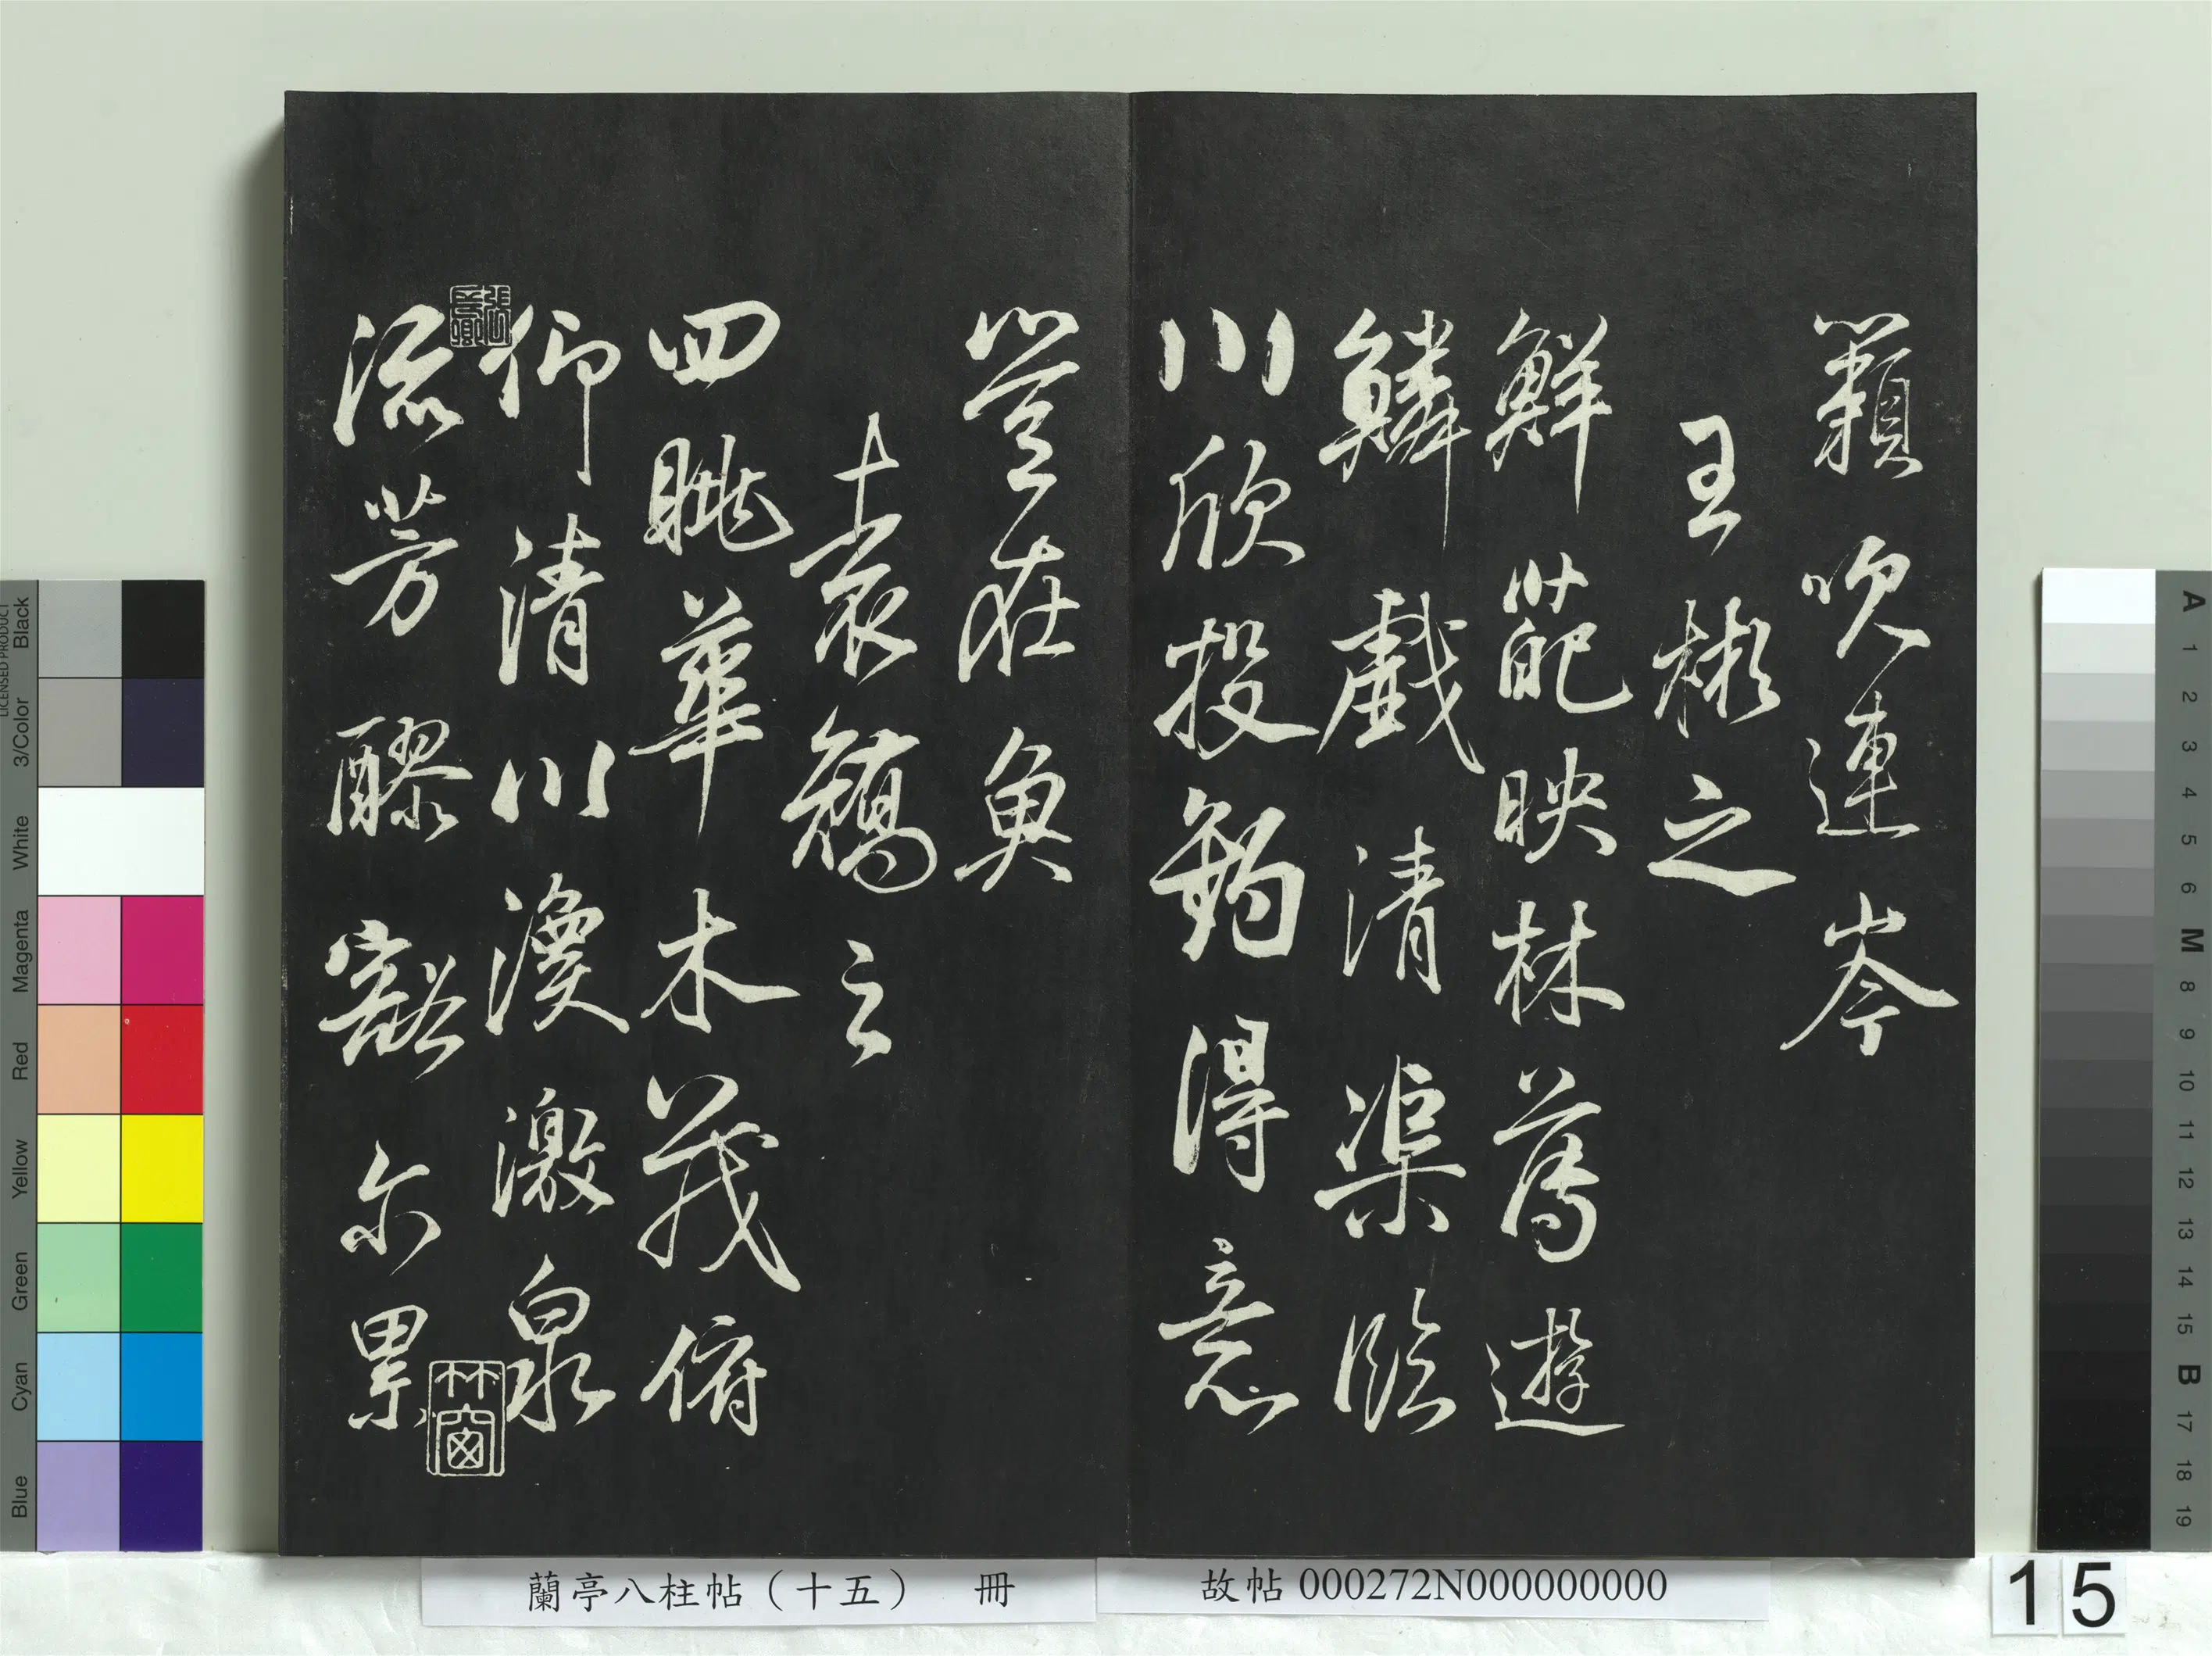 籟吹連岑
王彬之
鮮葩映林薄遊
鱗戲清渠臨
川欣投釣得意
豈在魚
袁嶠之
四眺華木茂俯
仰清川渙激泉
流芳醪豁尔累
蘭亭八柱帖（十五） 冊
故帖 000272N000000000
15
Blue Cyan Green Yellow Red Magenta White 3/Color Black
LICENSED PRODUCT
A 1 2 3 4 5 6 M 8 9 10 11 12 13 14 15 B 17 18 19